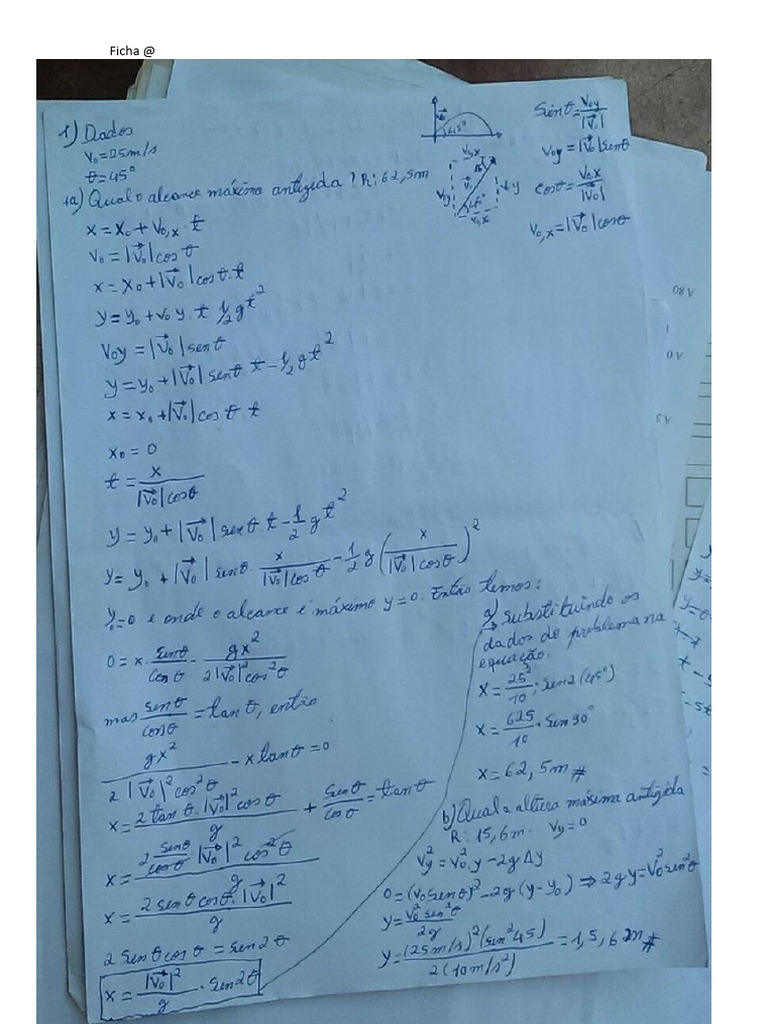 Ficha @
1) Dados
V₀ = 25 m/s
θ = 45°
1a) Qual o alcance máxima antigida? R: 62,5m
x = x₀ + V₀,x t
V₀ = |V⃗₀| cos θ
x = x₀ + |V⃗₀| cos θ · t
y = y₀ + v₀y · t 1/2 gt²
V₀y = |V⃗₀| sen θ
y = y₀ + |V⃗₀| sen θ t - 1/2 gt²
x = x₀ + |V⃗₀| cos θ · t
x₀ = 0
t = x / |V⃗₀| cos θ
y = y₀ + |V⃗₀| sen θ t - 1/2 g t²
y = y₀ + |V⃗₀| sen θ · x / |V⃗₀| cos θ - 1/2 g (x / |V⃗₀| cos θ)²
y₀ = 0 e onde o alcance é máximo y = 0. Então temos:
0 = x · sen θ / cos θ - gx² / 2|V⃗₀|² cos² θ
mas sen θ / cos θ = tan θ, então
gx² / 2|V⃗₀|² cos² θ - x tan θ = 0
x = 2 tan θ · |V⃗₀|² cos θ / g + sen θ / cos θ = tan θ
x = 2 sen θ / cos θ · |V⃗₀|² cos² θ / g
x = 2 sen θ cos θ · |V⃗₀|² / g
2 sen θ cos θ = sen 2θ
x = |V⃗₀|² / g · sen 2θ
45°
V₀x
V₀y
V⃗₀
45°
V₀y
V₀x
Sen θ = V₀y / |V⃗₀|
V₀y = |V⃗₀| sen θ
cos θ = V₀x / |V⃗₀|
V₀,x = |V⃗₀| cos θ
a) Substituindo os
dados do problema na
equação.
x = 25² / 10 · sen 2 (45°)
x = 625 / 10 · sen 90°
x = 62,5 m #
b) Qual a altura máxima antigida
R: 15,6 m. Vy = 0
V²y = V²₀,y - 2gΔy
0 = (V₀ sen θ)² - 2g (y - y₀) ⇒ 2gy = V₀² sen² θ
y = V₀² sen² θ / 2g
y = (25 m/s)² (sen² 45) / 2(10 m/s²) = 15,62m #